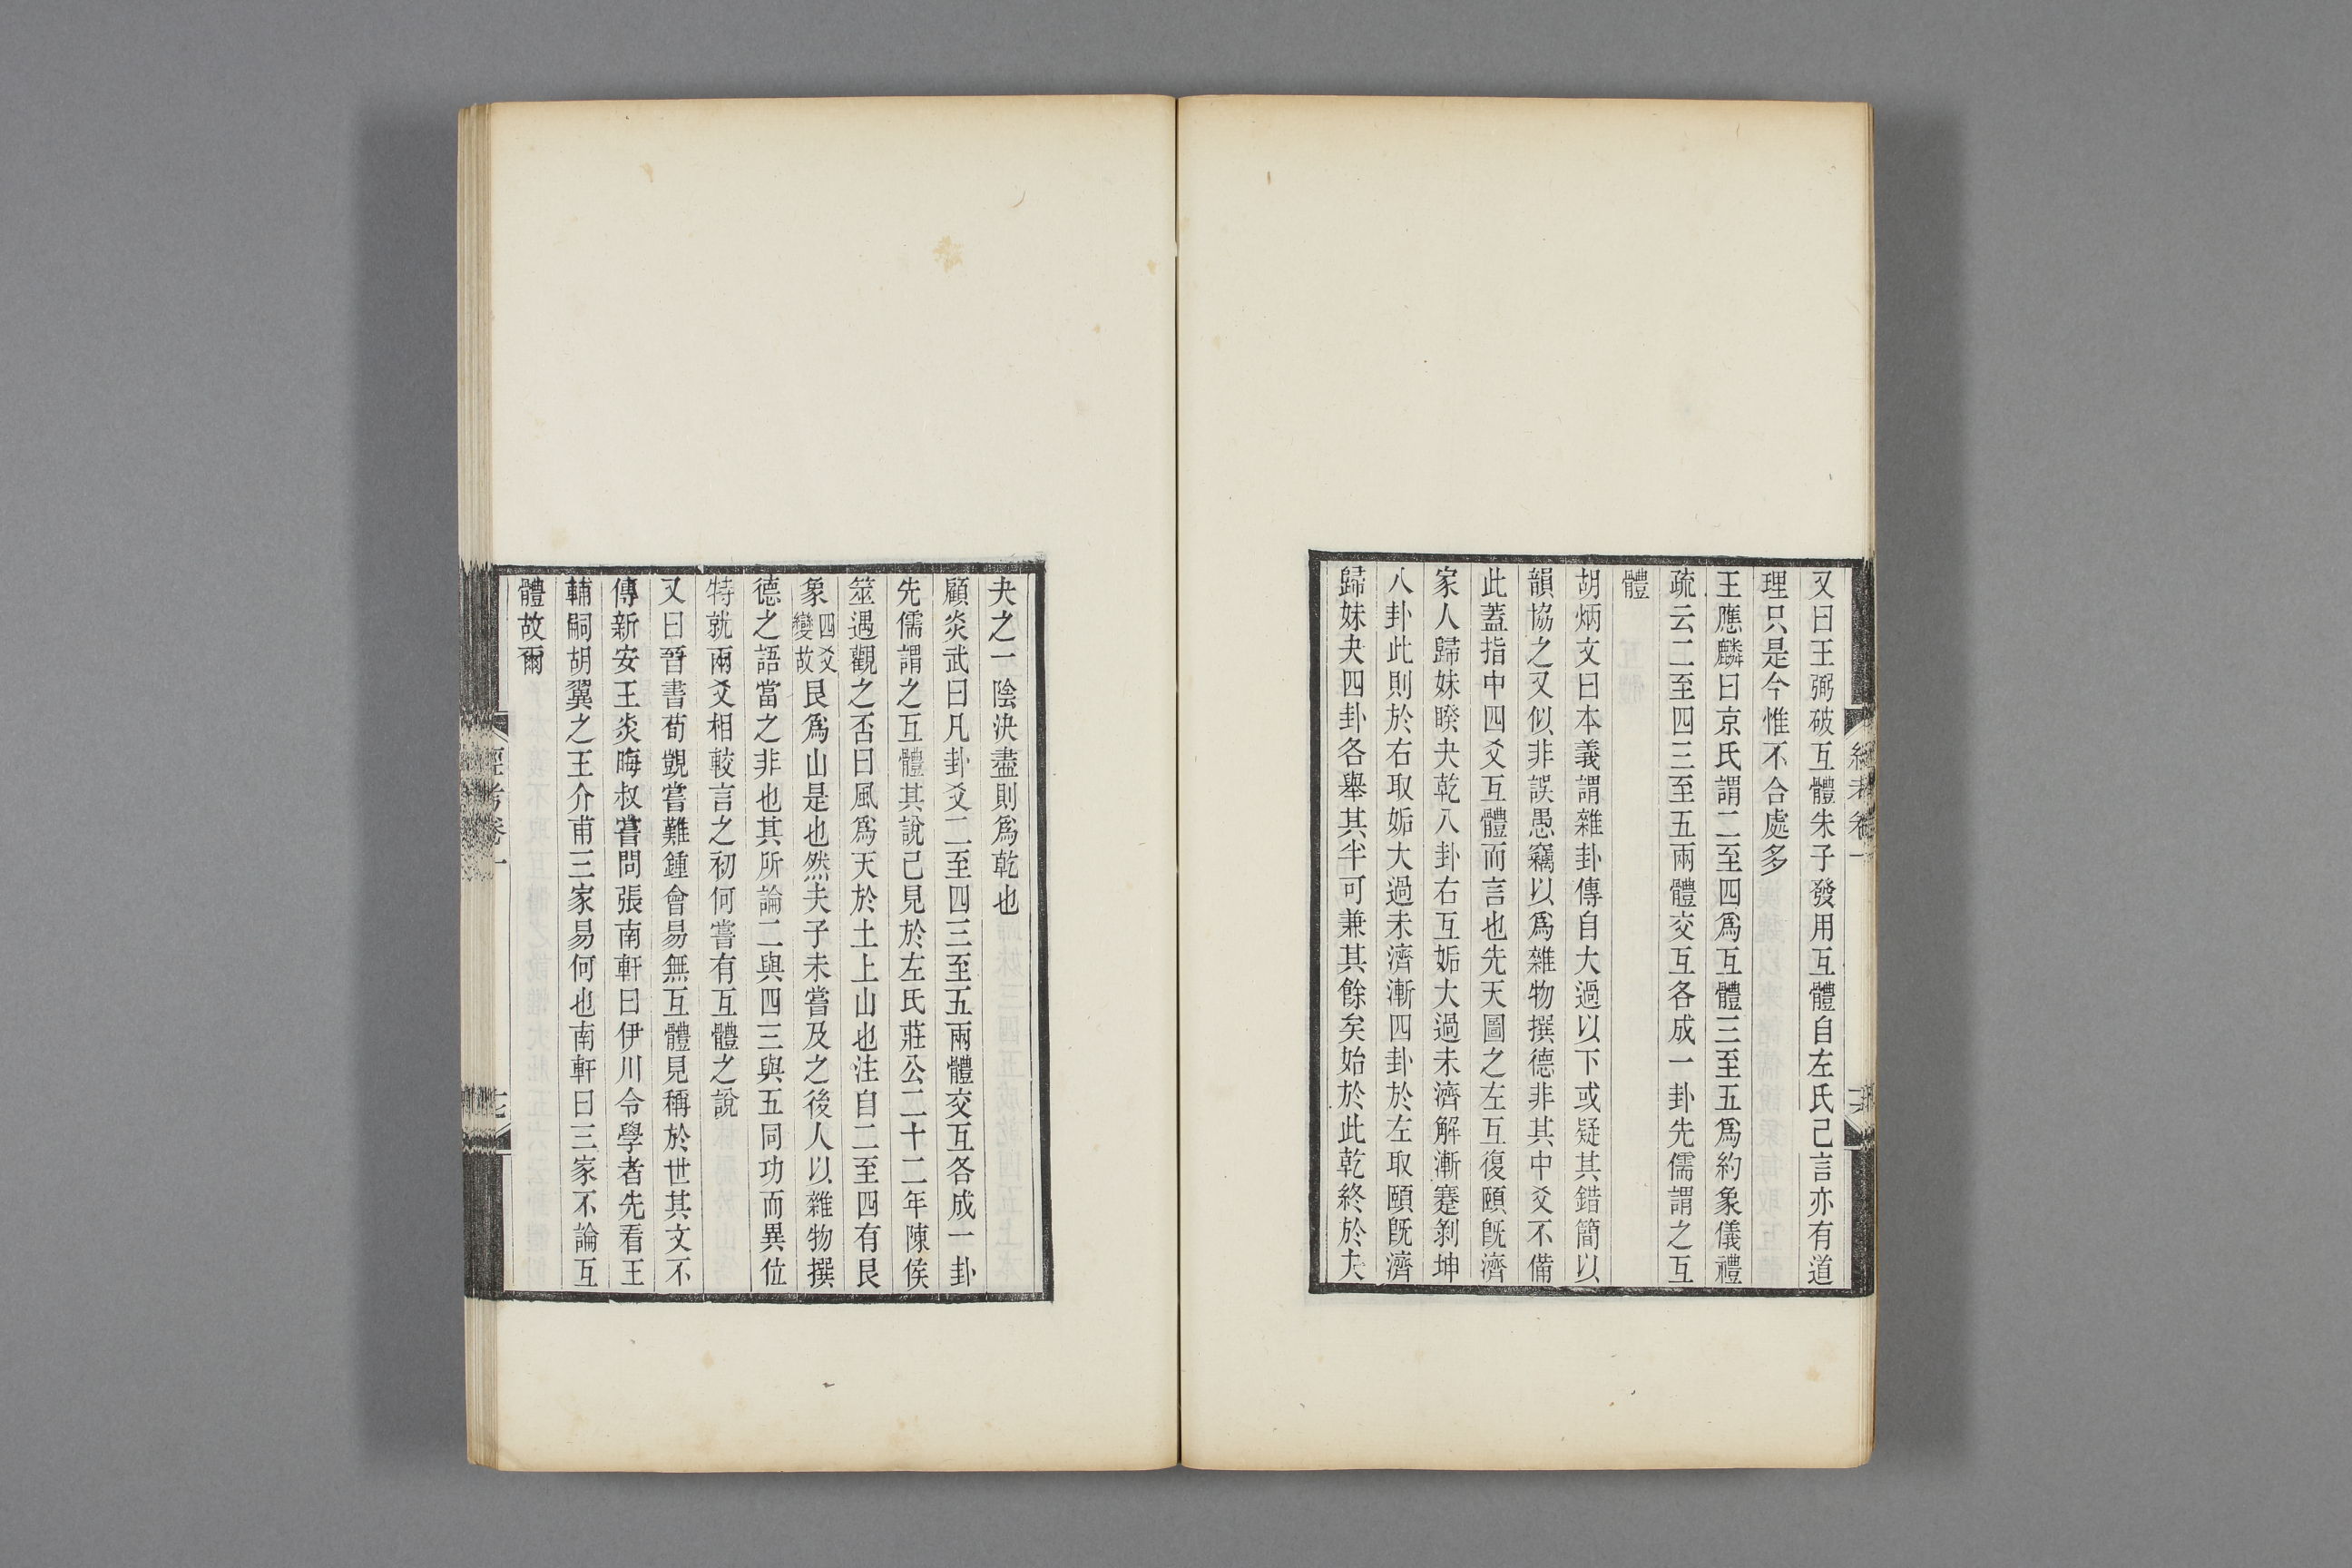 又曰王弼破互體朱子發用互體自左氏已言亦有道
理只是今惟不合處多
王應麟曰京氏謂二至四爲互體三至五爲約象儀禮
疏云二至四三至五兩體交互各成一卦先儒謂之互
體
胡炳文曰本義謂雜卦傳自大過以下或疑其錯簡以
韻協之又似非誤愚竊以爲雜物撰德非其中爻不備
此蓋指中四爻互體而言也先天圖之左互復頤旣濟
家人歸妹睽夬乾八卦右互姤大過未濟解漸蹇剝坤
八卦此則於右取姤大過未濟漸四卦於左取頤旣濟
歸妹夬四卦各舉其半可兼其餘矣始於此乾終於夬
夬之一陰決盡則爲乾也
顧炎武曰凡卦爻二至四三至五兩體交互各成一卦
先儒謂之互體其說已見於左氏莊公二十二年陳侯
筮遇觀之否曰風爲天於土上山也注自二至四有艮
象四爻變故艮爲山是也然夫子未嘗及之後人以雜物撰
德之語當之非也其所論二與四三與五同功而異位
特就兩爻相較言之初何嘗有互體之說
又曰晉書荀顗嘗難鍾會易無互體見稱於世其文不
傳新安王炎晦叔嘗問張南軒曰伊川令學者先看王
輔嗣胡翼之王介甫三家易何也南軒曰三家不論互
體故爾
經考卷一